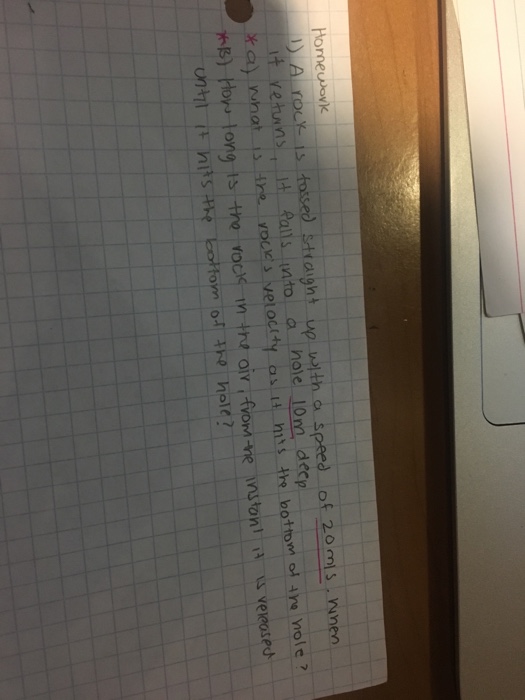 Homework
1) A rock is tossed straight up with a speed of 20m/s. When
it returns, it falls into a hole 10m deep
*a) What is the rock's velocity as it hits the bottom of the hole?
*B) How long is the rock in the air, from the instant it is released
until it hits the bottom of the hole?